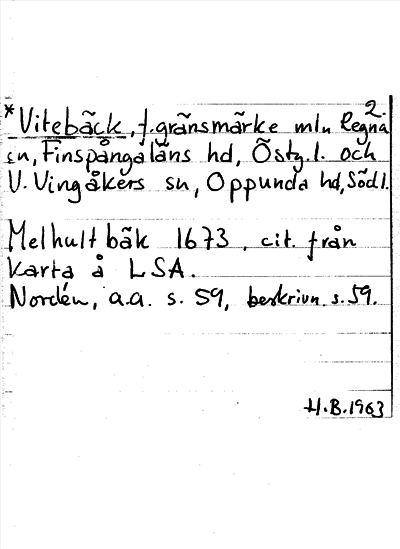 2.
*Vitebäck, f. gränsmärke mln Regna
sn, Finspånga läns hd, Östg.l. och
V. Vingåkers sn, Oppunda hd, Södl.
Melhult bäk 1673, cit. från
Karta å LSA.
Nordén, a.a. s. 59, beskrivn. s. 59.
H.B. 1963